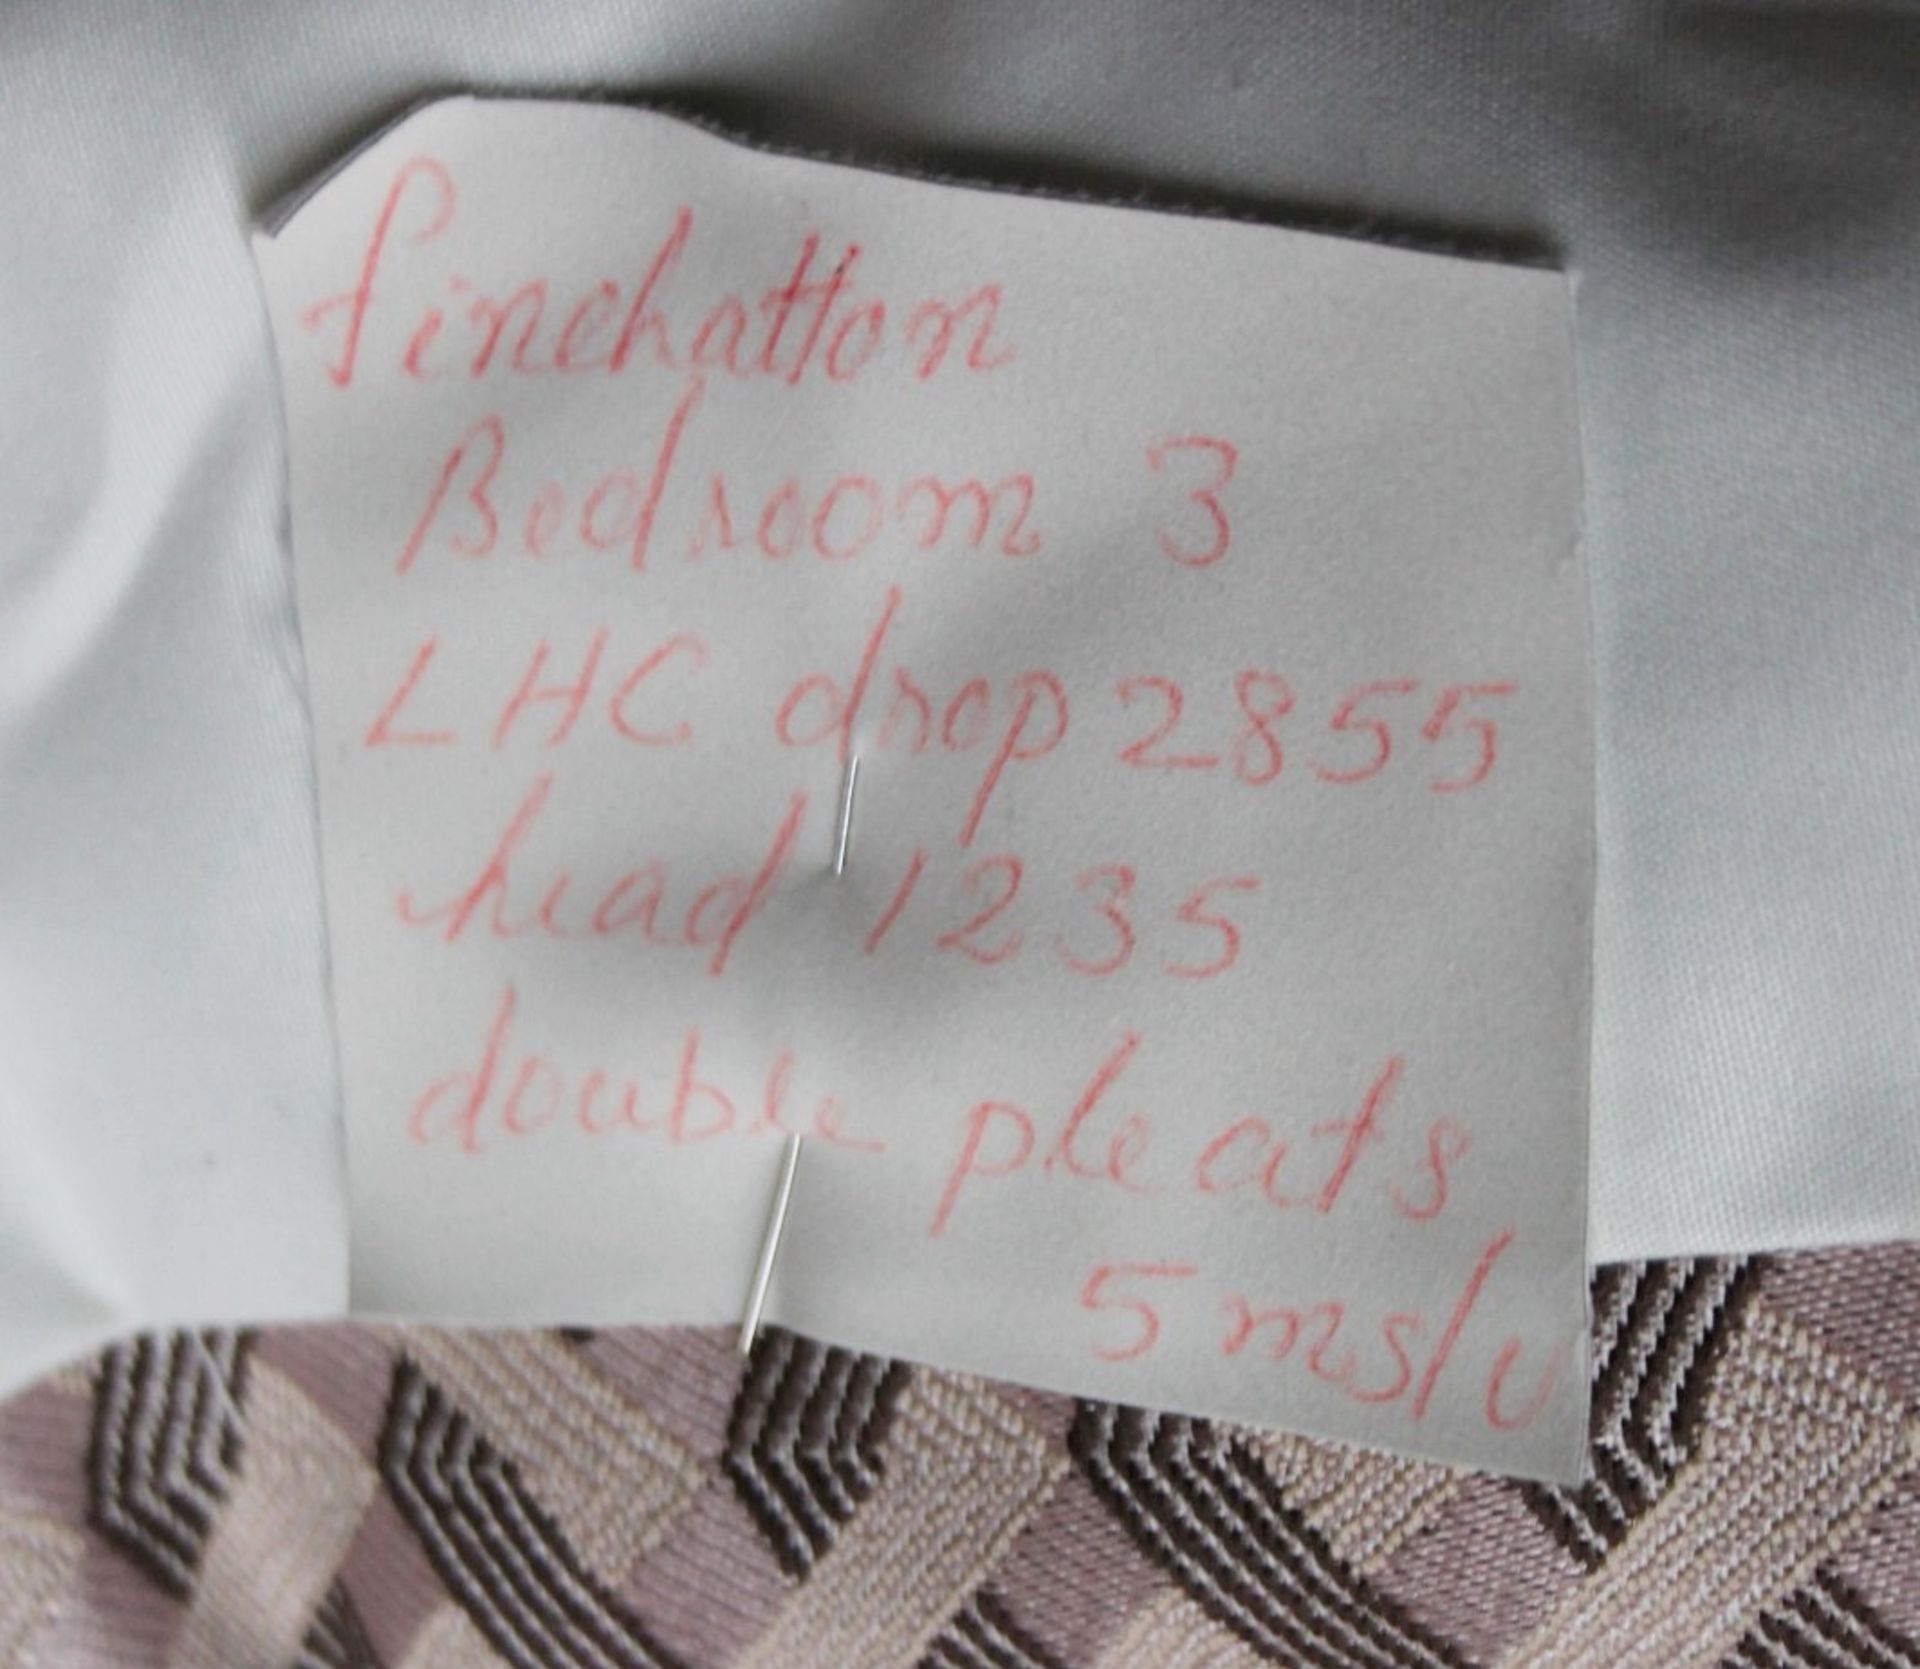 finchatton
Bedroom 3
LHC drop 2855
head 1235
double pleats
5ms/u